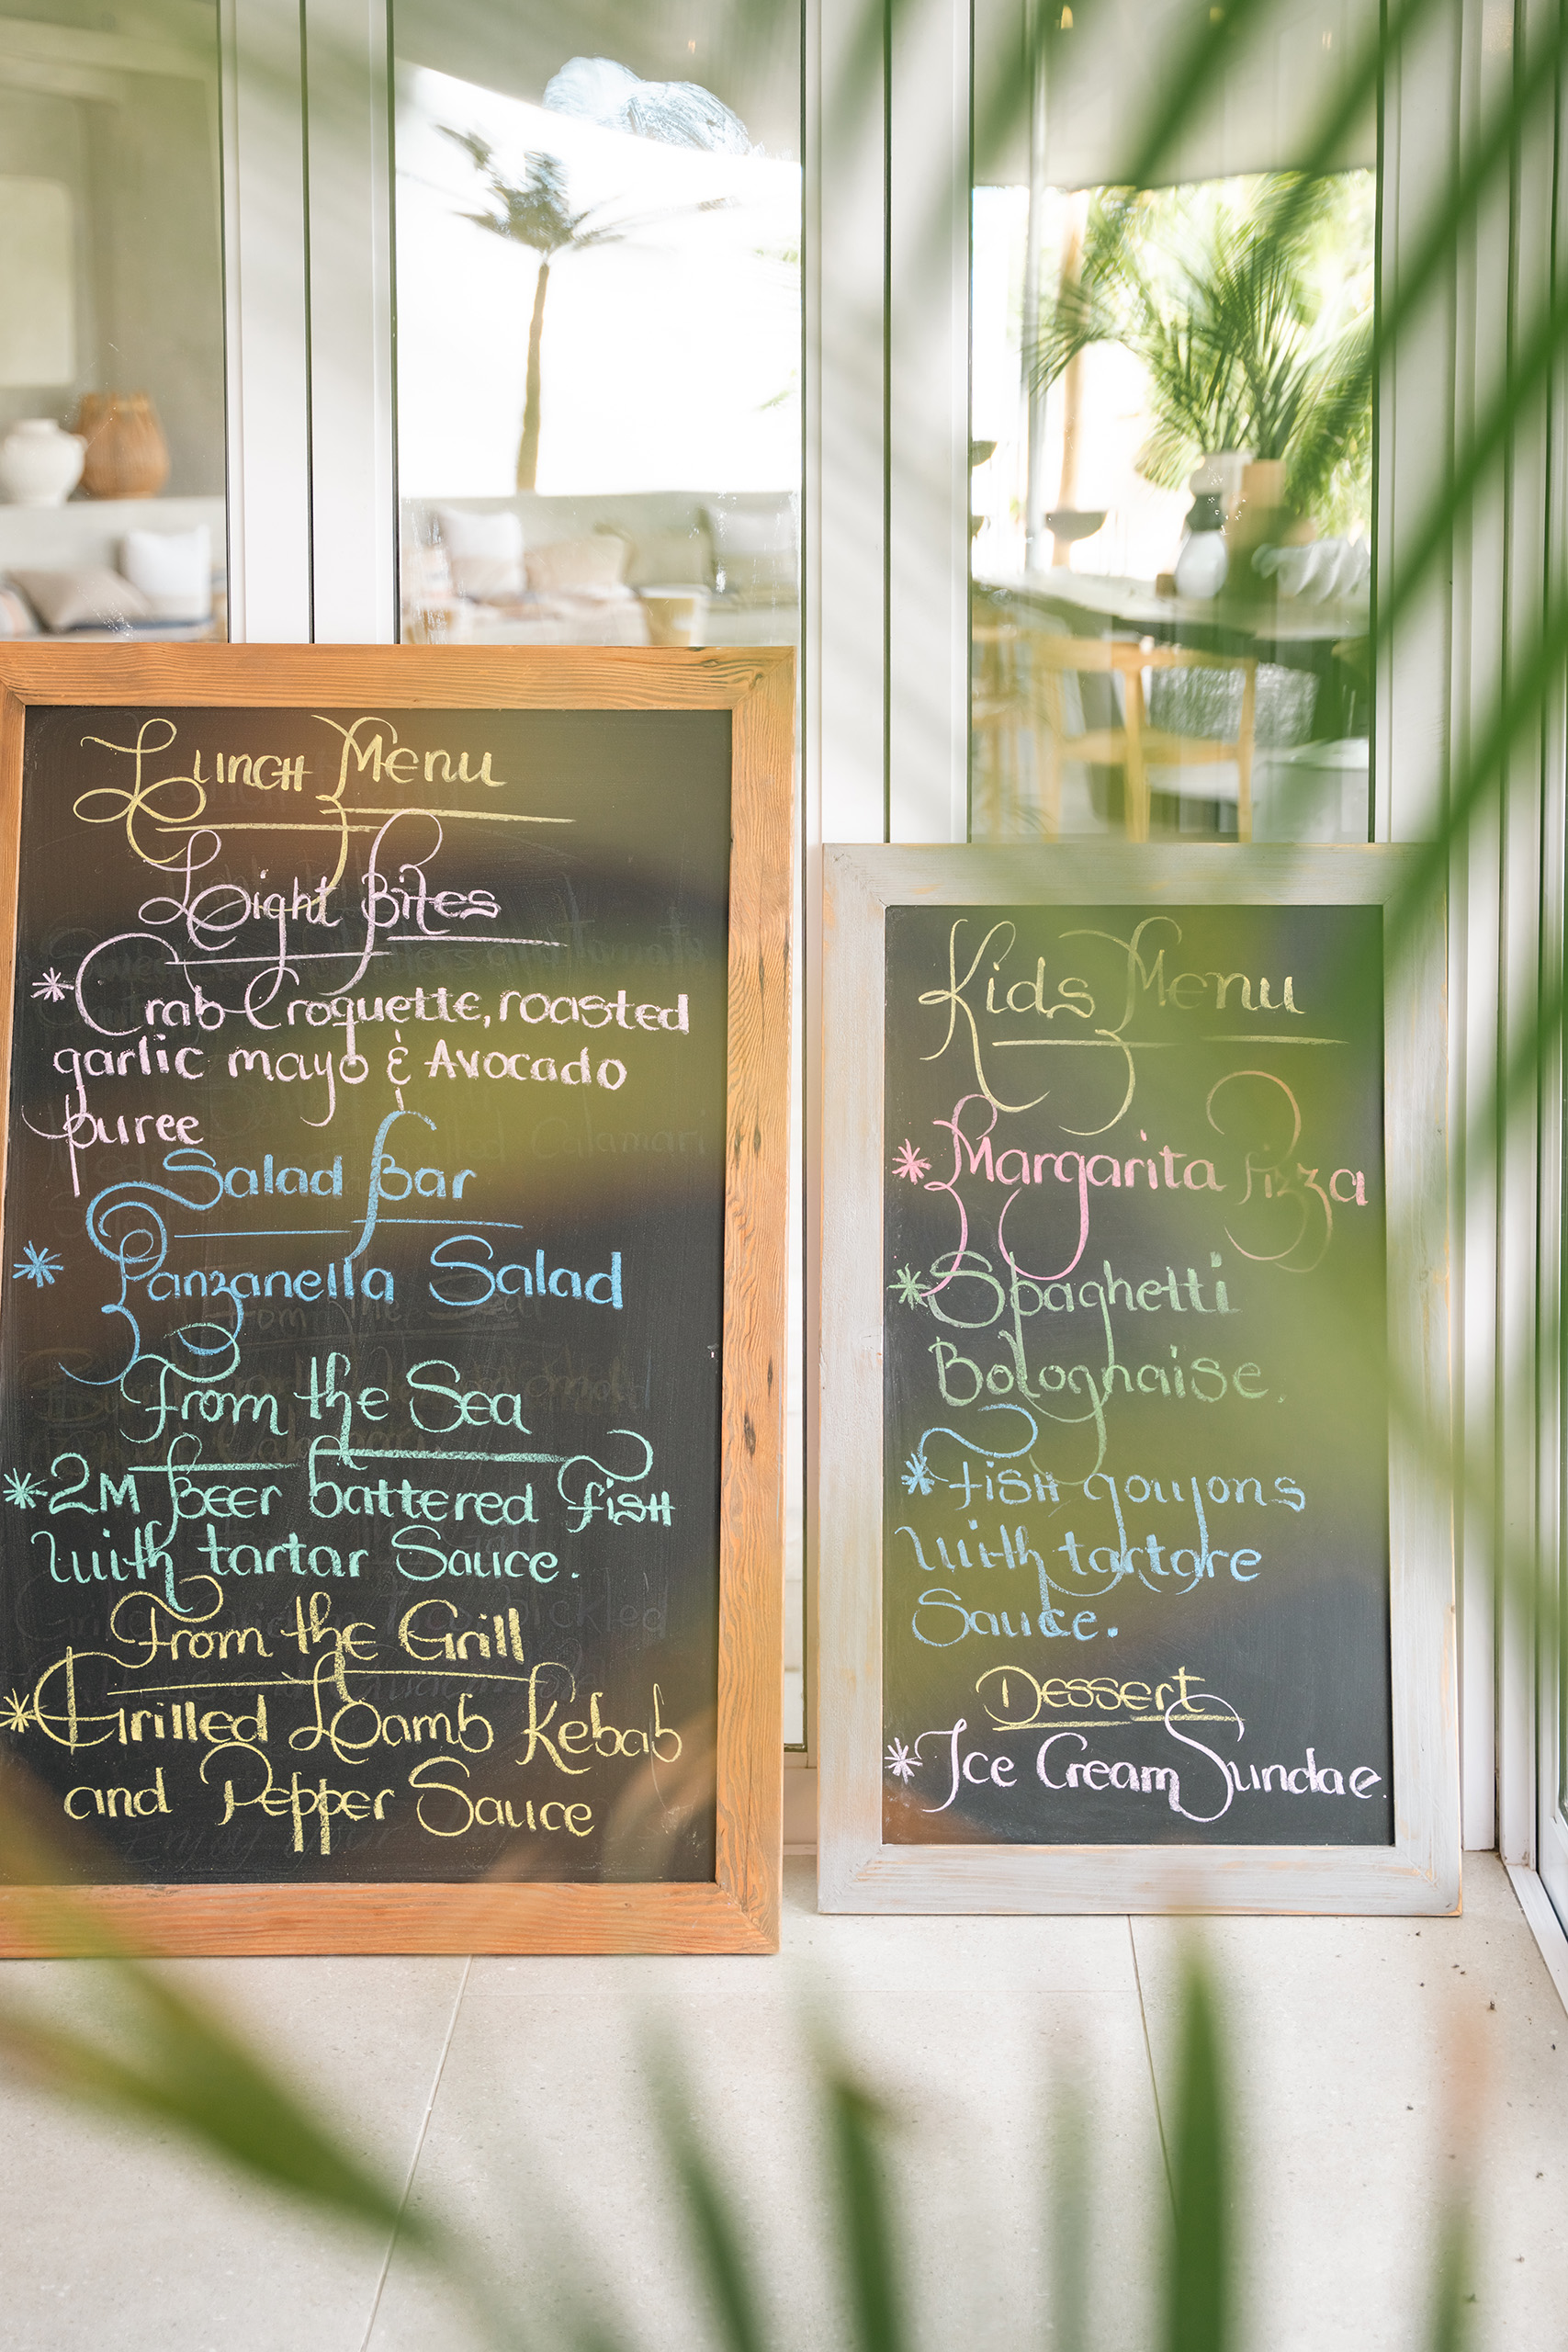 Lunch Menu
Light Bites
* Crab Croquette, roasted
garlic mayo & Avocado
puree
Salad Bar
* Panzanella Salad
From the Sea
* 2M Beer battered Fish
with tartar Sauce.
From the Grill
* Grilled Lamb Kebab
and Pepper Sauce
Kids Menu
* Margarita Pizza
* Spaghetti
Bolognaise.
* Fish goujons
with tartare
Sauce.
Dessert
* Ice Cream Sundae.